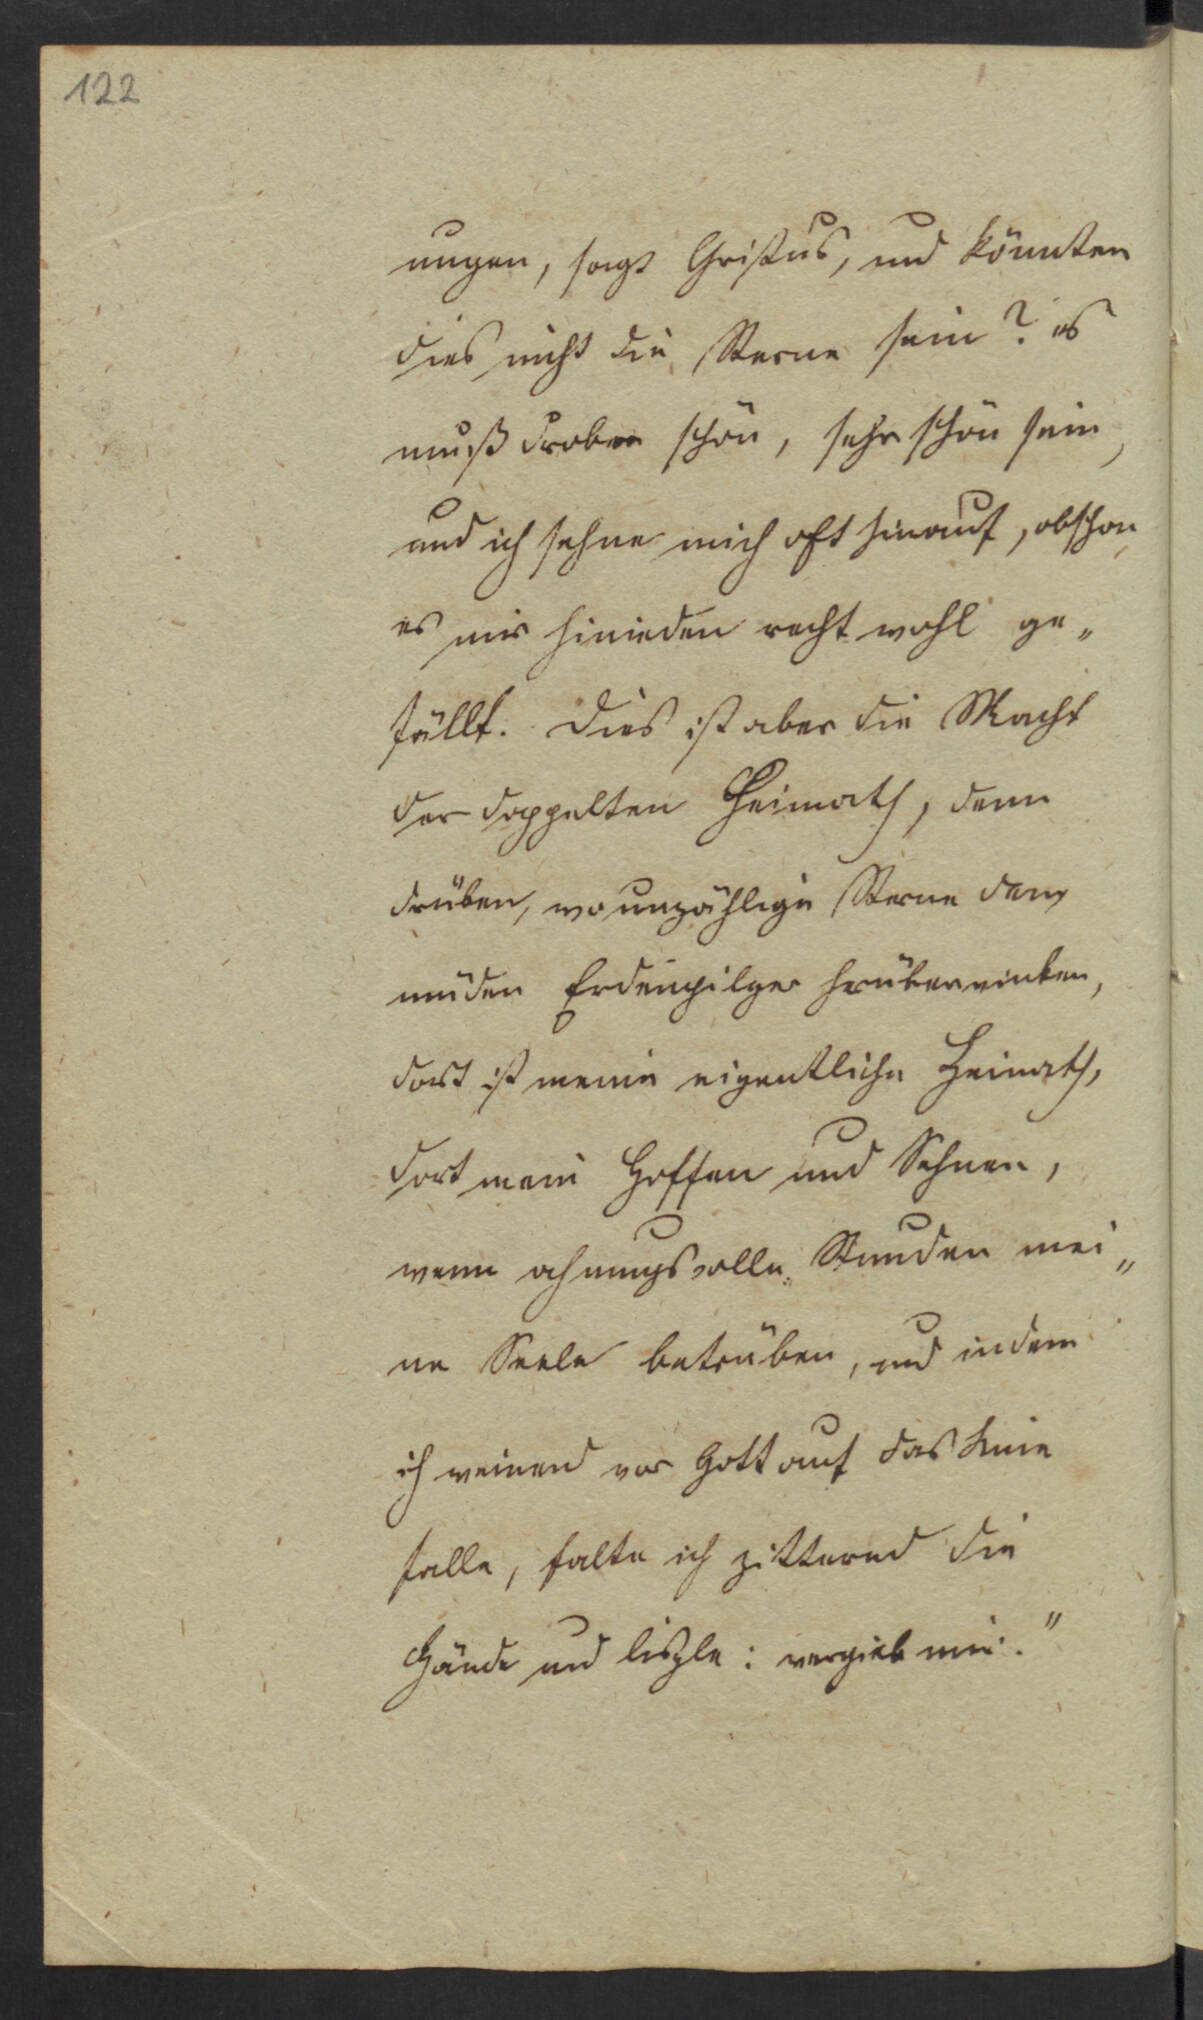 122
nungen, sagt Christus, und könnten
dies nicht die Sterne sein? es
muß droben schön, sehr schön sein,
und ich sehne mich oft hinauf, obschon
es mir hinieden recht wohl ge„
fällt. Dies ist aber die Macht
der doppelten Heimath, denn
drüben, wo unzählige Sterne dem
müden Erdenpilger herüberwinken,
dort ist meine eigentliche Heimath,
dort mein Hoffen und Sehnen,
wenn ahnungsvolle Stunden mei„
ne Seele betrüben, und indem
ich weinend vor Gott auf das Knie
falle, falte ich zitternd die
Hände und lisple: vergieb mir."